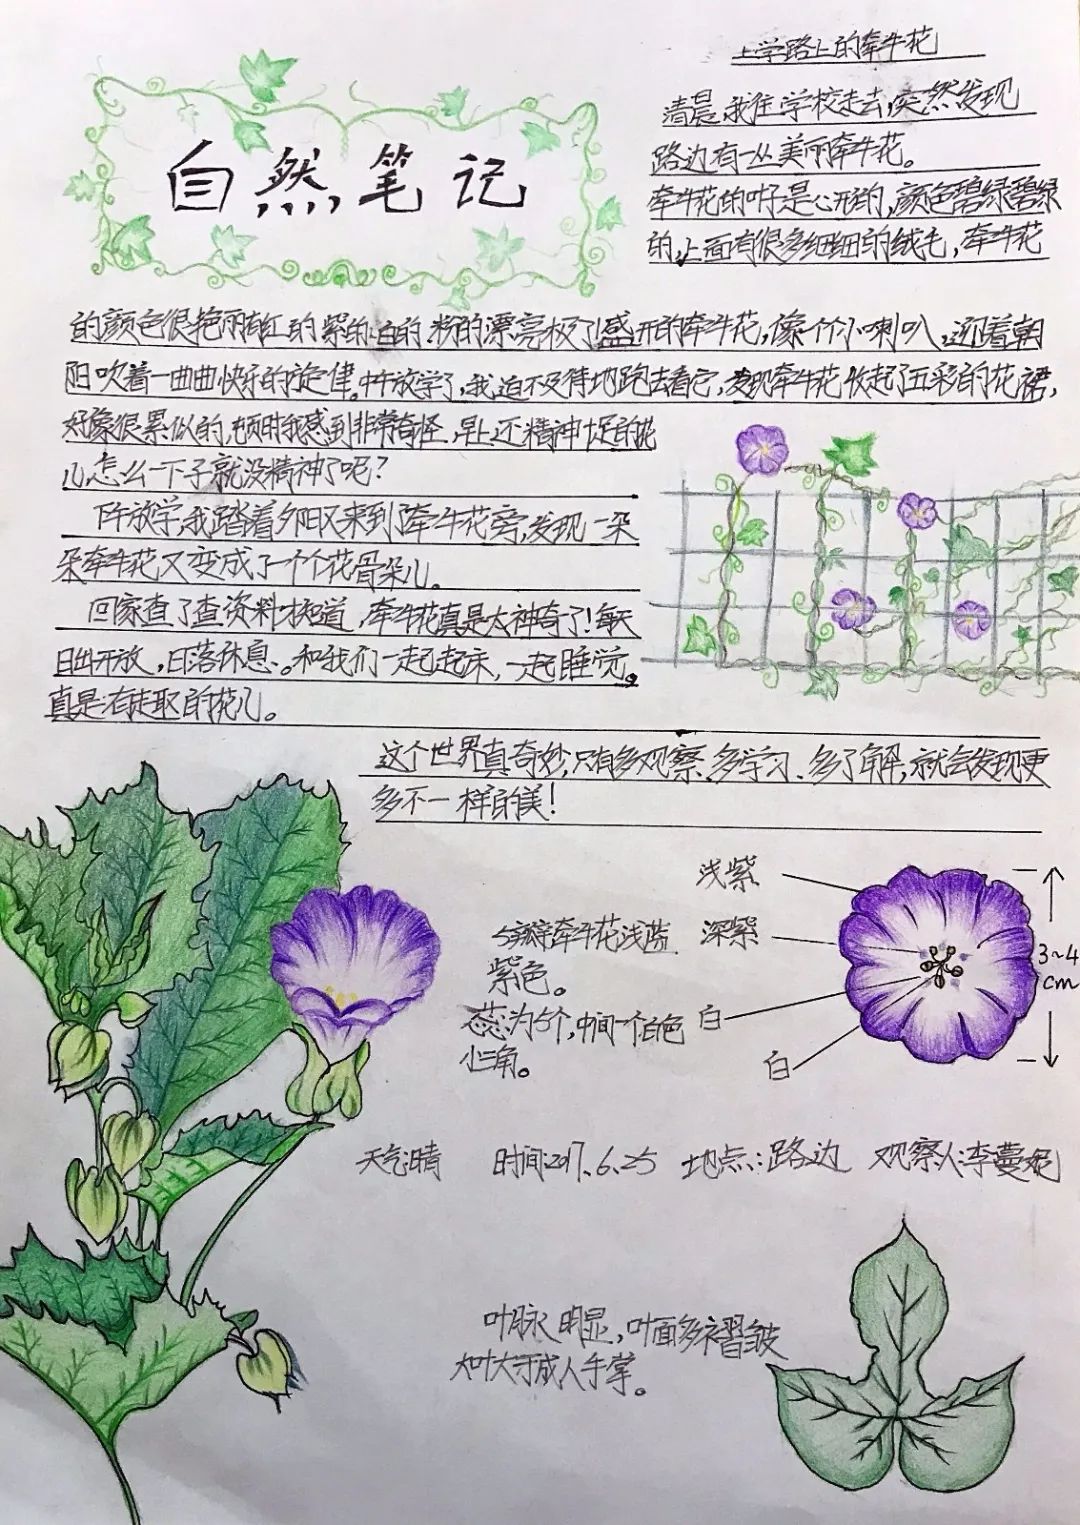 自然笔记
上学路上的牵牛花
清晨,我往学校走去,突然发现
路边有一丛美丽牵牛花。
牵牛花的叶子是心形的,颜色碧绿碧绿
的,上面有很多细细的绒毛,牵牛花
的颜色很艳丽有红的紫的、白的、粉的漂亮极了!盛开的牵牛花,像个个小喇叭,迎着朝
阳吹着一曲曲快乐的旋律。中午放学了,我迫不及待地跑去看它,发现牵牛花收起了五彩的花裙,
好像很累似的,顿时我感到非常奇怪,早上还精神十足的花
儿,怎么一下子就没精神了呢?
下午放学,我踏着夕阳又来到牵牛花旁,发现一朵
朵牵牛花又变成了一个个花骨朵儿。
回家查了查资料才知道,牵牛花真是太神奇了!每天
日出开放,日落休息。和我们一起起床,一起睡觉。
真是有趣的花儿。
这个世界真奇妙,只有多观察、多学习、多了解,就会发现更
多不一样的美!
浅紫
深紫
白
白
3~4
cm
5瓣牵牛花浅蓝
紫色。
蕊为5个,中间一个白色
小三角。
天气:晴 时间:2017.6.25 地点:路边 观察人:李蔓妮
叶脉明显,叶面多褶皱
大叶大于成人手掌。